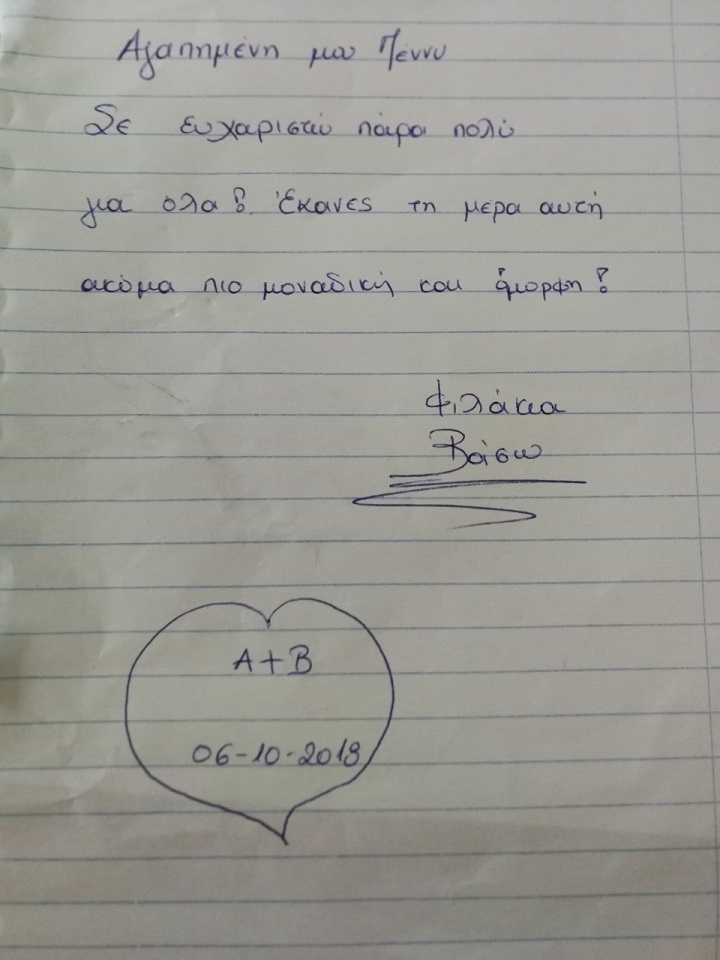 Αγαπημένη μου Πέννυ
Σε ευχαριστώ πάρα πολύ
για ολα! Έκανες τη μερα αυτή
ακόμα πιο μοναδική και όμορφη!
Φιλάκια
Βάσω
A+B
06-10-2018